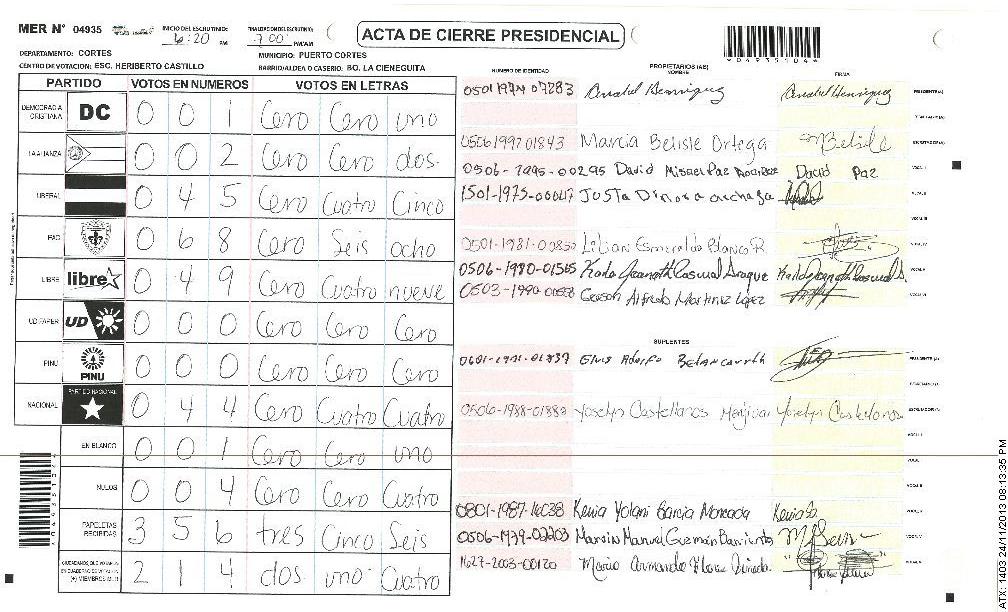 MER N° 04935
INICIO DEL ESCRUTINIO: 6:20 PM
FINALIZACION DEL ESCRUTINIO: 7:00 PM/AM
ACTA DE CIERRE PRESIDENCIAL
*04935104*
DEPARTAMENTO: CORTES
MUNICIPIO: PUERTO CORTES
CENTRO DE VOTACION: ESC. HERIBERTO CASTILLO
BARRIO/ALDEA O CASERIO: BO. LA CIENEGUITA
PARTIDO VOTOS EN NUMEROS VOTOS EN LETRAS
DEMOCRACIA CRISTIANA DC 0 0 1 Cero Cero uno
LA ALIANZA 0 0 2 Cero Cero dos
LIBERAL 0 4 5 Cero Cuatro Cinco
PAC 0 6 8 Cero Seis ocho
LIBRE libre 0 4 9 Cero Cuatro nueve
UD FAPER UD 0 0 0 Cero Cero Cero
PINU PINU 0 0 0 Cero Cero Cero
NACIONAL PARTIDO NACIONAL 0 4 4 Cero Cuatro Cuatro
EN BLANCO 0 0 1 Cero Cero uno
NULOS 0 0 4 Cero Cero Cuatro
PAPELETAS RECIBIDAS 3 5 6 tres Cinco Seis
CIUDADANOS QUE VOTARON (+) MIEMBROS MER 2 1 4 dos uno Cuatro
NUMERO DE IDENTIDAD PROPIETARIOS (AS) NOMBRE FIRMA
0501 1974 07283 Anabel Henriquez Anabel Henriquez PRESIDENTE (A)
0506 1992 01843 Marcia Belisle Ortega MBelisle
0506-1995-00295 David Misael Paz David Paz
1501-1975-00017 Justa Dinora
0501-1981-00850 Lilian Esmeralda Polanco R
0506-1980-01565 Karla Jeaneth Pascual Araque Karla Jeaneth Pascual A.
0503-1990- Gerson Alfredo Martinez Lopez
SUPLENTES
0601-1991-01837 Elvis Adolfo Betancourth PRESIDENTE (A)
0506-1988-01883 Yoselyn Castellanos Menjivar Yoselyn Castellanos
0801-1987-16038 Kenia Yolani Garcia Moncada Kenia G.
0506-1979-02203 Marvin Manuel Guzmán Barrientos
1627-2003-00120 Mario Armando
ATX: 1403 24/11/2013 08:13:35 PM